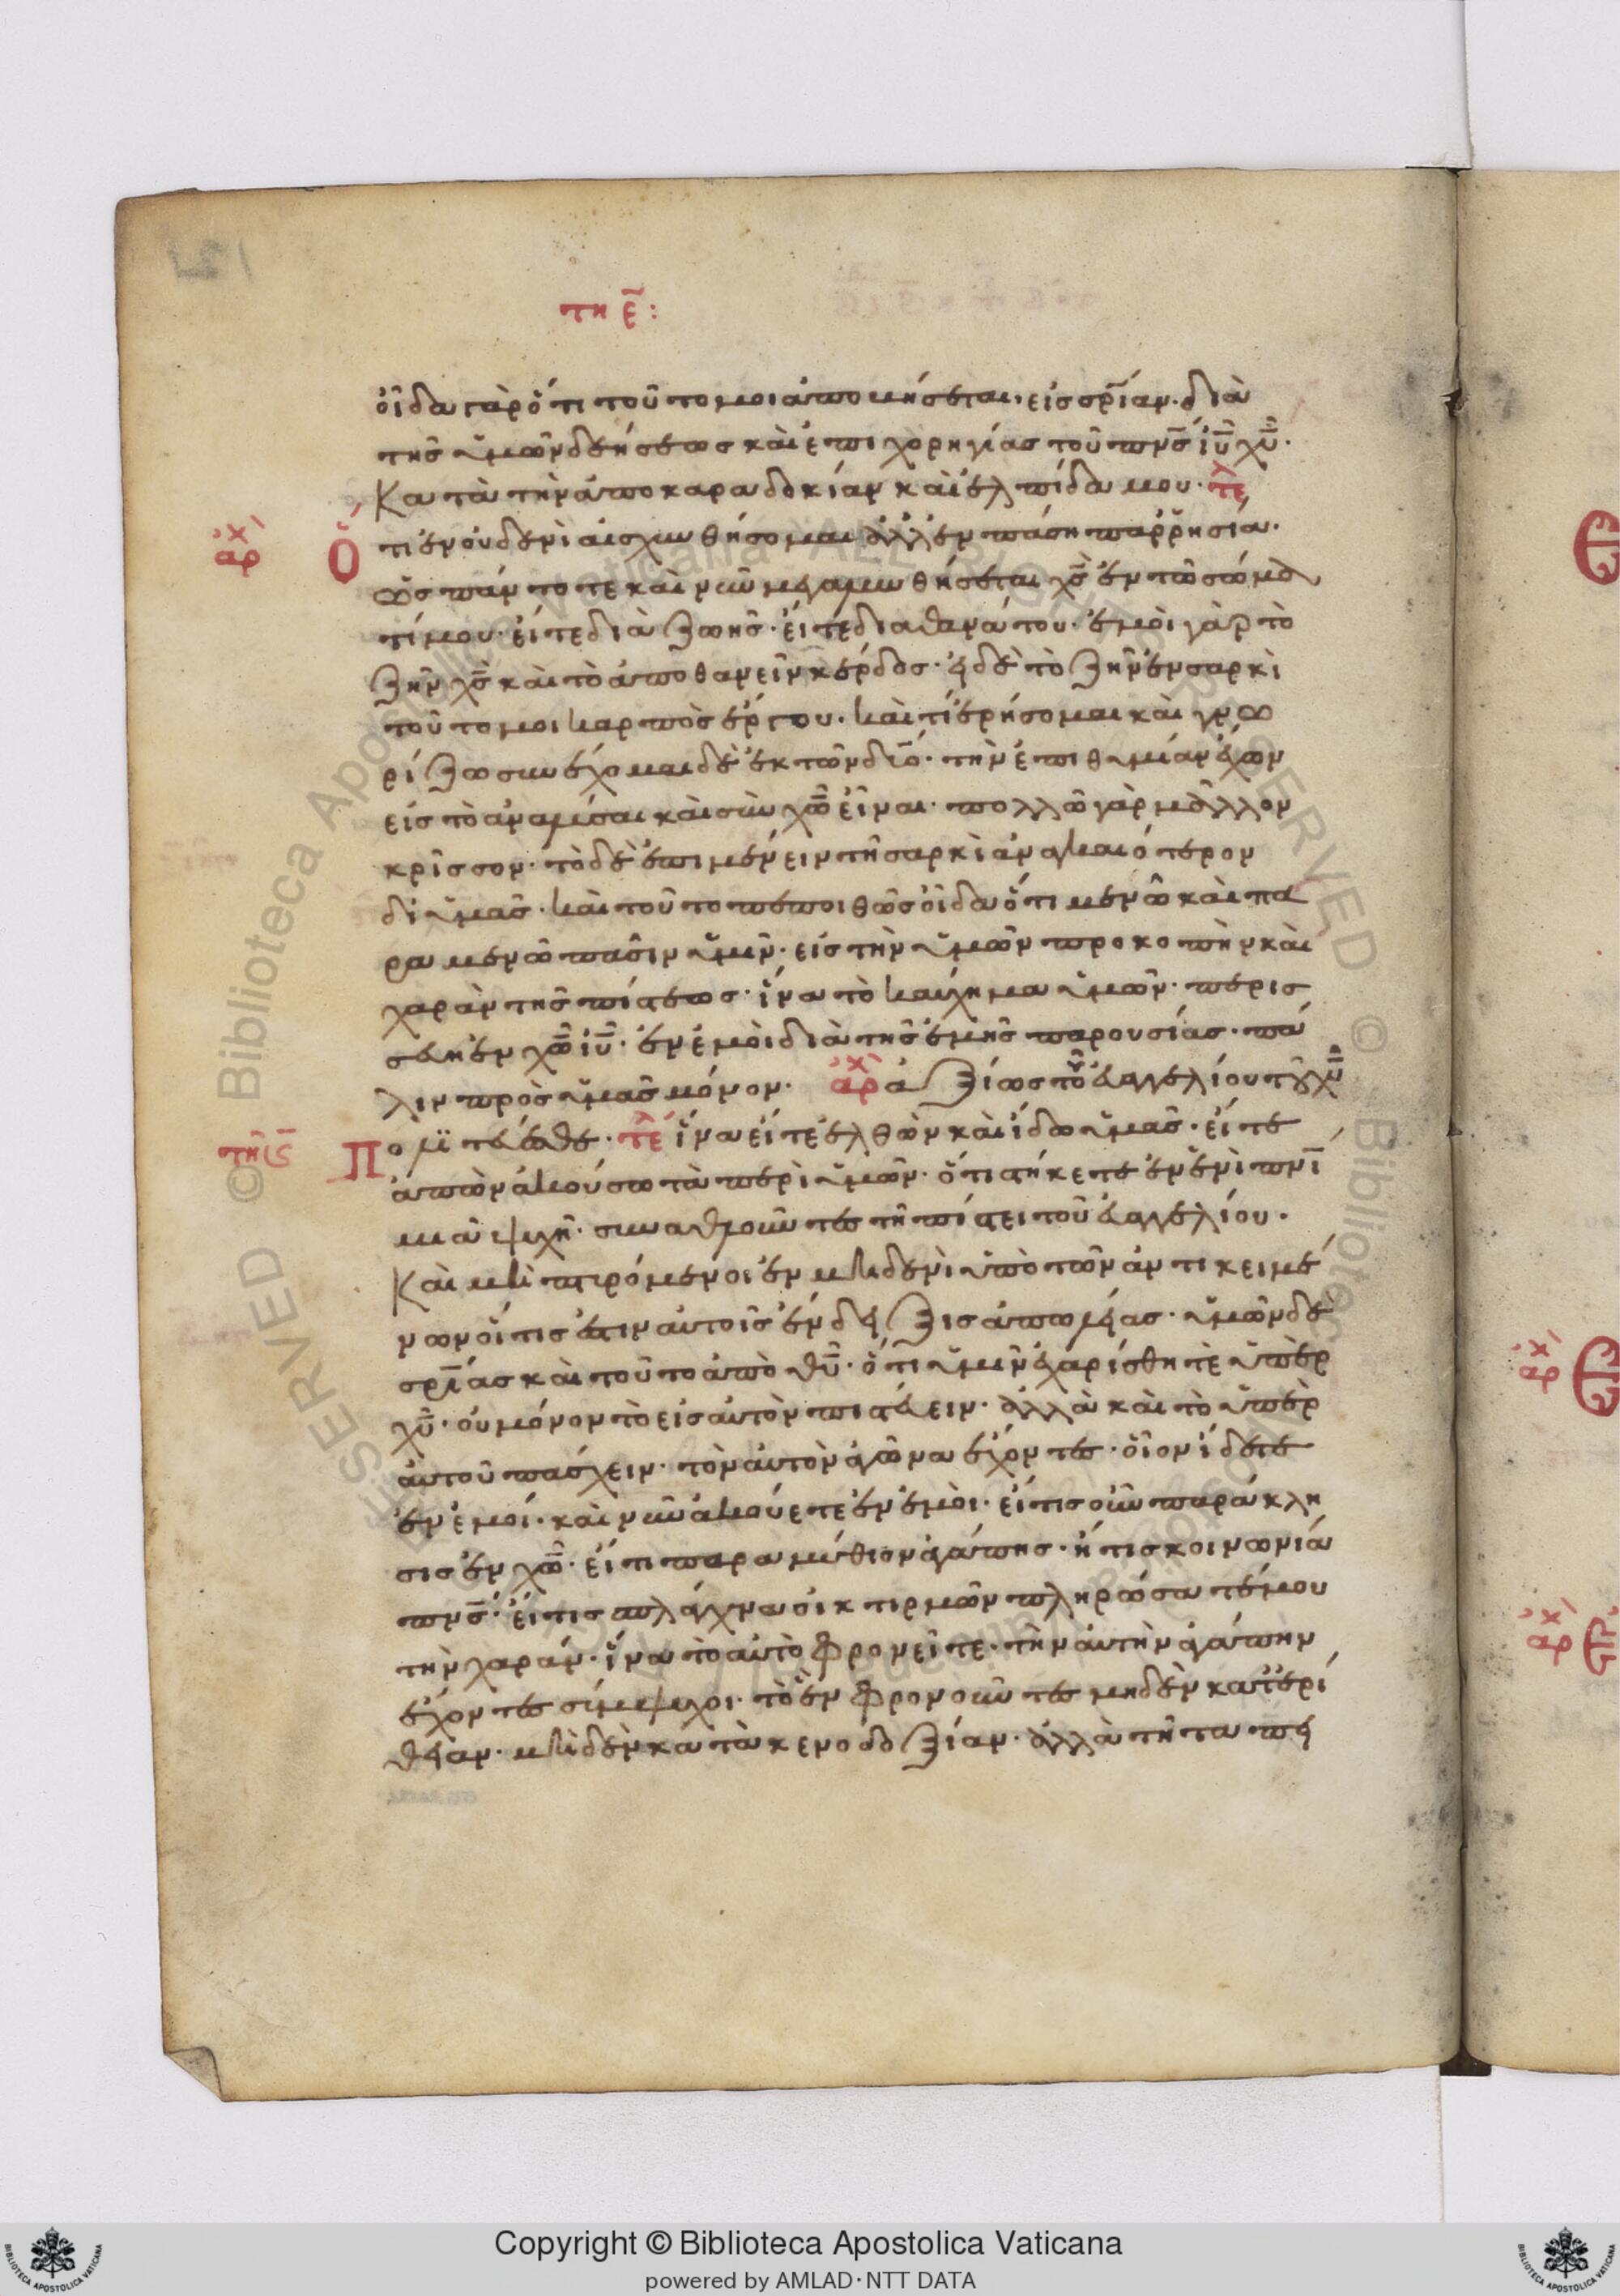 τη ε̅:
οἶδα γὰρ ὅτι τοῦτο μοι ἀποβήσεται εἰς σρ̅ίαν· διὰ
τῆς ὑμῶν δεήσεως καὶ ἐπιχορηγίας τοῦ πν̅ς ἰ̅υ χ̅υ·
Κατὰ τὴν ἀποκαραδοκίαν καὶ ἐλπίδα μου· τε
ἀρχ Ὅτι ἐν οὐδενὶ αἰσχυνθήσομαι ἀλλ' ἐν πάση παρρησία·
ὡς πάντοτε καὶ νῦν μεγαλυνθήσεται χ̅ς ἐν τῶ σώμα
τί μου· εἴτε διὰ ζωῆς· εἴτε διὰ θανάτου· ἐμοὶ γὰρ τὸ
ζῆν χ̅ς καὶ τὸ ἀποθανεῖν κέρδος· εἰ δὲ τὸ ζῆν ἐν σαρκὶ
τοῦτο μοι καρπὸς ἔργου· καὶ τί ἐρήσομαι καὶ γνω
ρίζω συνέχομαι δὲ ἐκ τῶν δύο· τὴν ἐπιθυμίαν ἔχων
εἰς τὸ ἀναλύσαι καὶ σὺν χ̅ω εἶναι· πολλῶ γὰρ μᾶλλον
κρῖσσον· τὸ δὲ ἐπιμένειν τῆ σαρκὶ ἀναγκαιότερον
δι' ὑμᾶς· καὶ τοῦτο πεποιθὼς οἶδα ὅτι μενῶ καὶ πα
ραμενῶ πᾶσιν ὑμῖν· εἰς τὴν ὑμῶν προκοπὴν καὶ
χαρὰν τῆς πίστεως· ἵνα τὸ καύχημα ὑμῶν· περισ
σεύη ἐν χ̅ω ἰ̅υ· ἐν ἐμοὶ διὰ τῆς ἐμῆς παρουσίας· πά
λιν πρὸς ὑμᾶς μόνον· ἀρχ ἀξίως τοῦ εὐαγγελίου τοῦ χ̅υ
τῆ ς̅ Πολιτεύεσθε· τε ἵνα εἴτε ἐλθὼν καὶ ἰδὼ ὑμᾶς· εἴτε
ἀπὼν ἀκούσω τὰ περὶ ὑμῶν· ὅτι στήκετε ἐν ἑνὶ πν̅ι
μιᾶ ψυχῆ· συναθλοῦντες τῆ πίστει τοῦ εὐαγγελίου·
Καὶ μὴ πτυρόμενοι ἐν μηδενὶ ὑπὸ τῶν ἀντικειμέ
νων οἵτις ἐστιν αὐτοῖς ἔνδειξις ἀπωλείας· ὑμῶν δὲ
σρ̅ίας καὶ τοῦτο ἀπὸ θ̅υ· ὅτι ὑμῖν ἐχαρίσθη τὲ ὑπὲρ
χ̅υ· οὐ μόνον τὸ εἰς αὐτὸν πιστεύειν· ἀλλὰ καὶ τὸ ὑπὲρ
αὐτοῦ πάσχειν· τὸν αὐτὸν ἀγῶνα ἔχοντες· οἷον ἴδετε
ἐν ἐμοί· καὶ νῦν ἀκούετε ἐν ἐμοὶ· εἴ τις οὖν παράκλη
σις ἐν χ̅ω· εἴ τι παραμύθιον ἀγάπης· ἤ τις κοινωνιά
πν̅ς· εἴ τις σπλάγχνα οἰκτιρμῶν πληρώσατέ μου
τὴν χαράν· ἵνα τὸ αὐτὸ φρονεῖτε· τὴν αὐτὴν ἀγάπην
ἔχοντες σύμψυχοι· τὸ ἓν φρονοῦντες μηδὲν κατ' ἐρί
θειαν· μηδὲν κατὰ κενοδοξίαν· ἀλλὰ τῆ ταπει
Copyright © Biblioteca Apostolica Vaticana
powered by AMLAD·NTT DATA